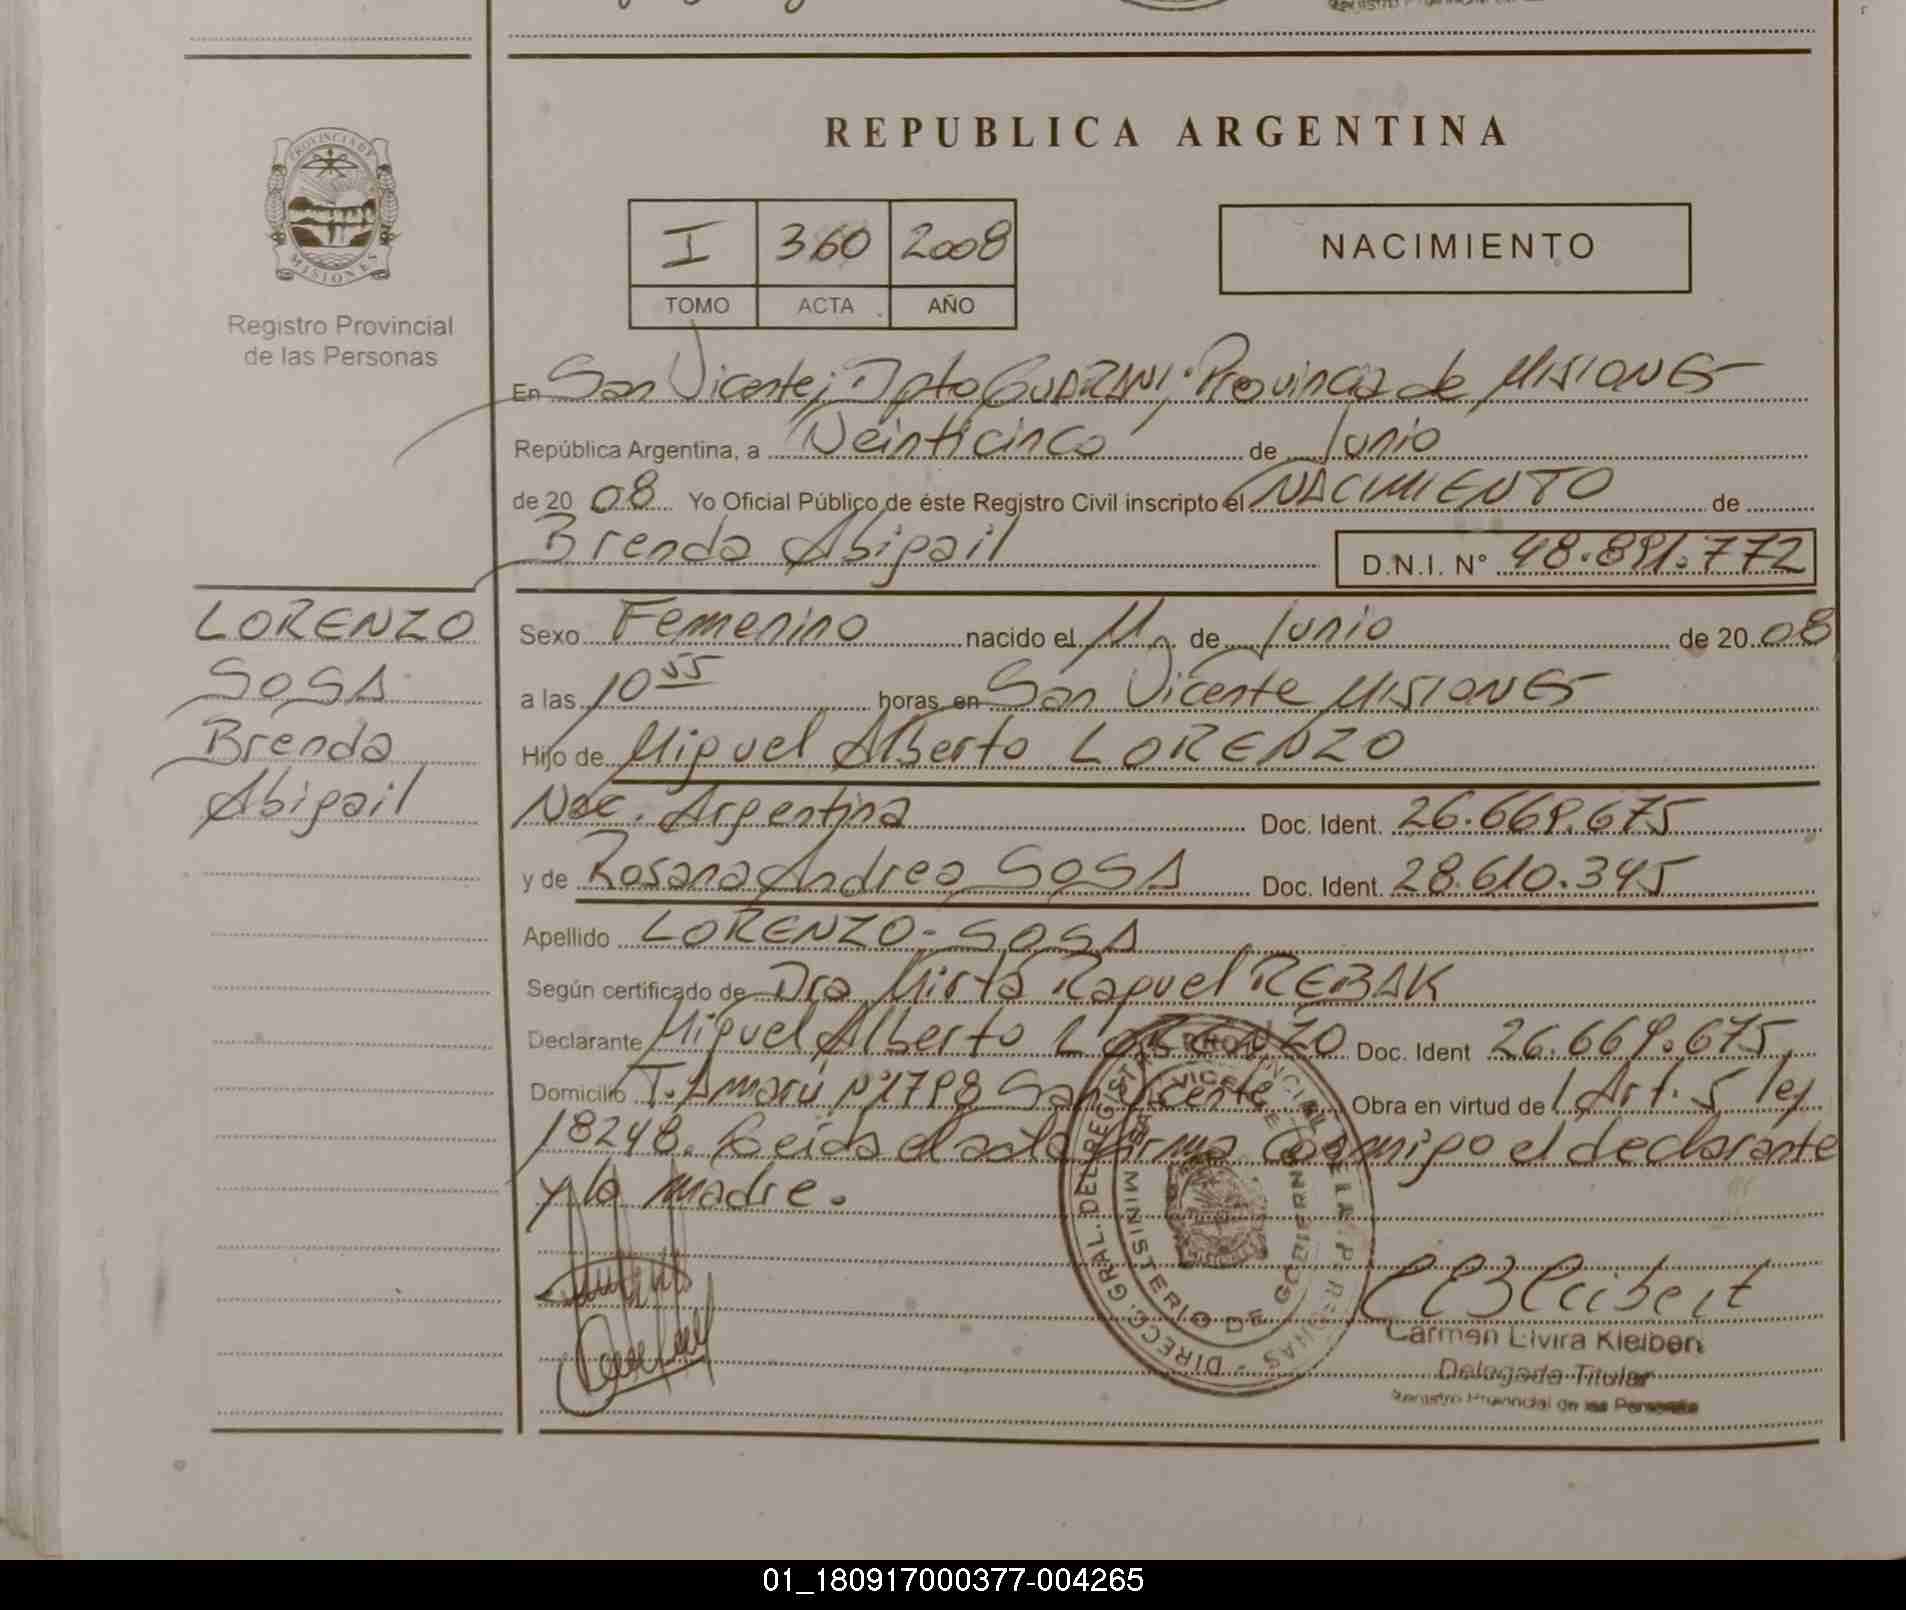 REPUBLICA ARGENTINA
PROVINCIA DE
MISIONES
Registro Provincial
de las Personas
I 360 2008
TOMO ACTA AÑO
NACIMIENTO
En San Vicente, Dpto GUARANI, Provincia de MISIONES
República Argentina, a Veinticinco de Junio
de 20 08 Yo Oficial Público de éste Registro Civil inscripto el NACIMIENTO de
Brenda Abigail D.N.I. N° 48.891.772
LORENZO
SOSA
Brenda
Abigail
Sexo Femenino nacido el 11 de Junio de 20 08
a las 10 55 horas, en San Vicente MISIONES
Hijo de Miguel Alberto LORENZO
Nac. Argentina Doc. Ident. 26.669.675
y de Rosana Andrea SOSA Doc. Ident. 28.610.345
Apellido LORENZO-SOSA
Según certificado de Dra Mirta Raquel REBAK
Declarante Miguel Alberto LORENZO Doc. Ident 26.669.675
Domicilio T. Amarú Nº1798 San Vicente Obra en virtud de Art. 5 ley
18248. Leida el acta firma conmigo el declarante
y la madre.
DIRECC. GRAL. DEL REGISTRO PROVINCIAL DE LAS PERSONAS
MINISTERIO DE GOBIERNO
Carmen Elvira Kleibert
Delegada Titular
Registro Provincial de las Personas
01_180917000377-004265